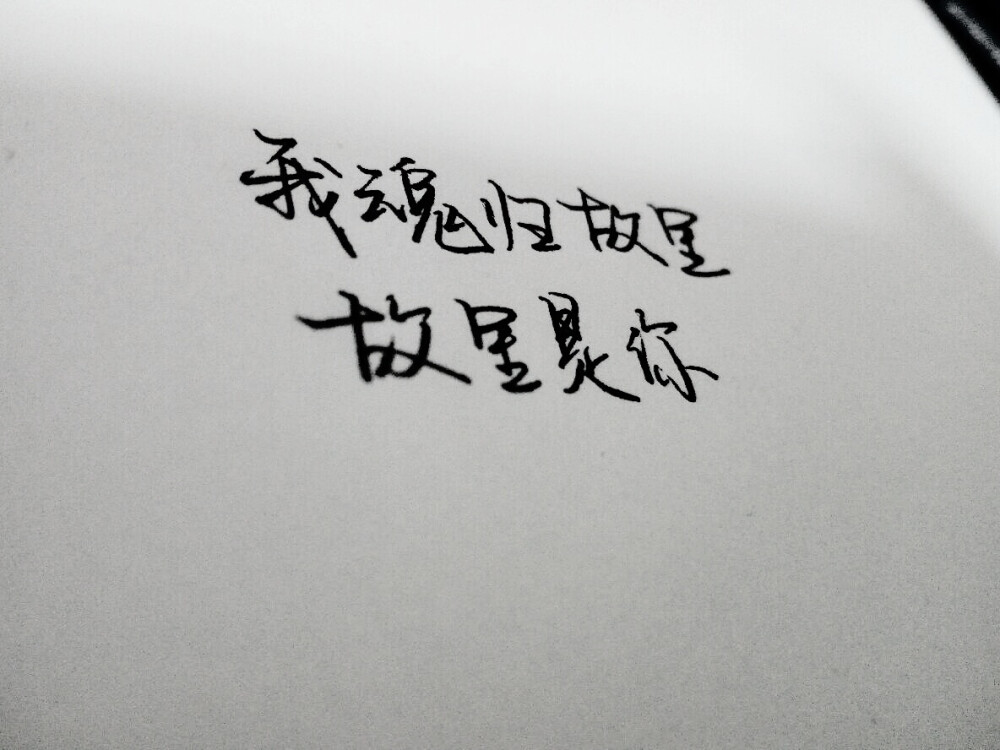 我魂归故里
故里是你